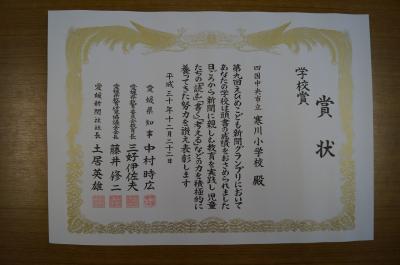 賞状
学校賞
四国中央市立 寒川小学校 殿
第九回えひめこども新聞グランプリにおいて
あなたの学校は頭書の成績をおさめられました
日ごろから新聞に親しむ教育を実践し児童
たちの「読む」「書く」「考える」などの力を積極的に
養ってきた努力を讃え表彰します
平成三十年十二月二十二日
愛媛県知事 中村時広
愛媛県教育委員会教育長 三好伊佐夫
藤井修二
愛媛新聞社社長 土居英雄